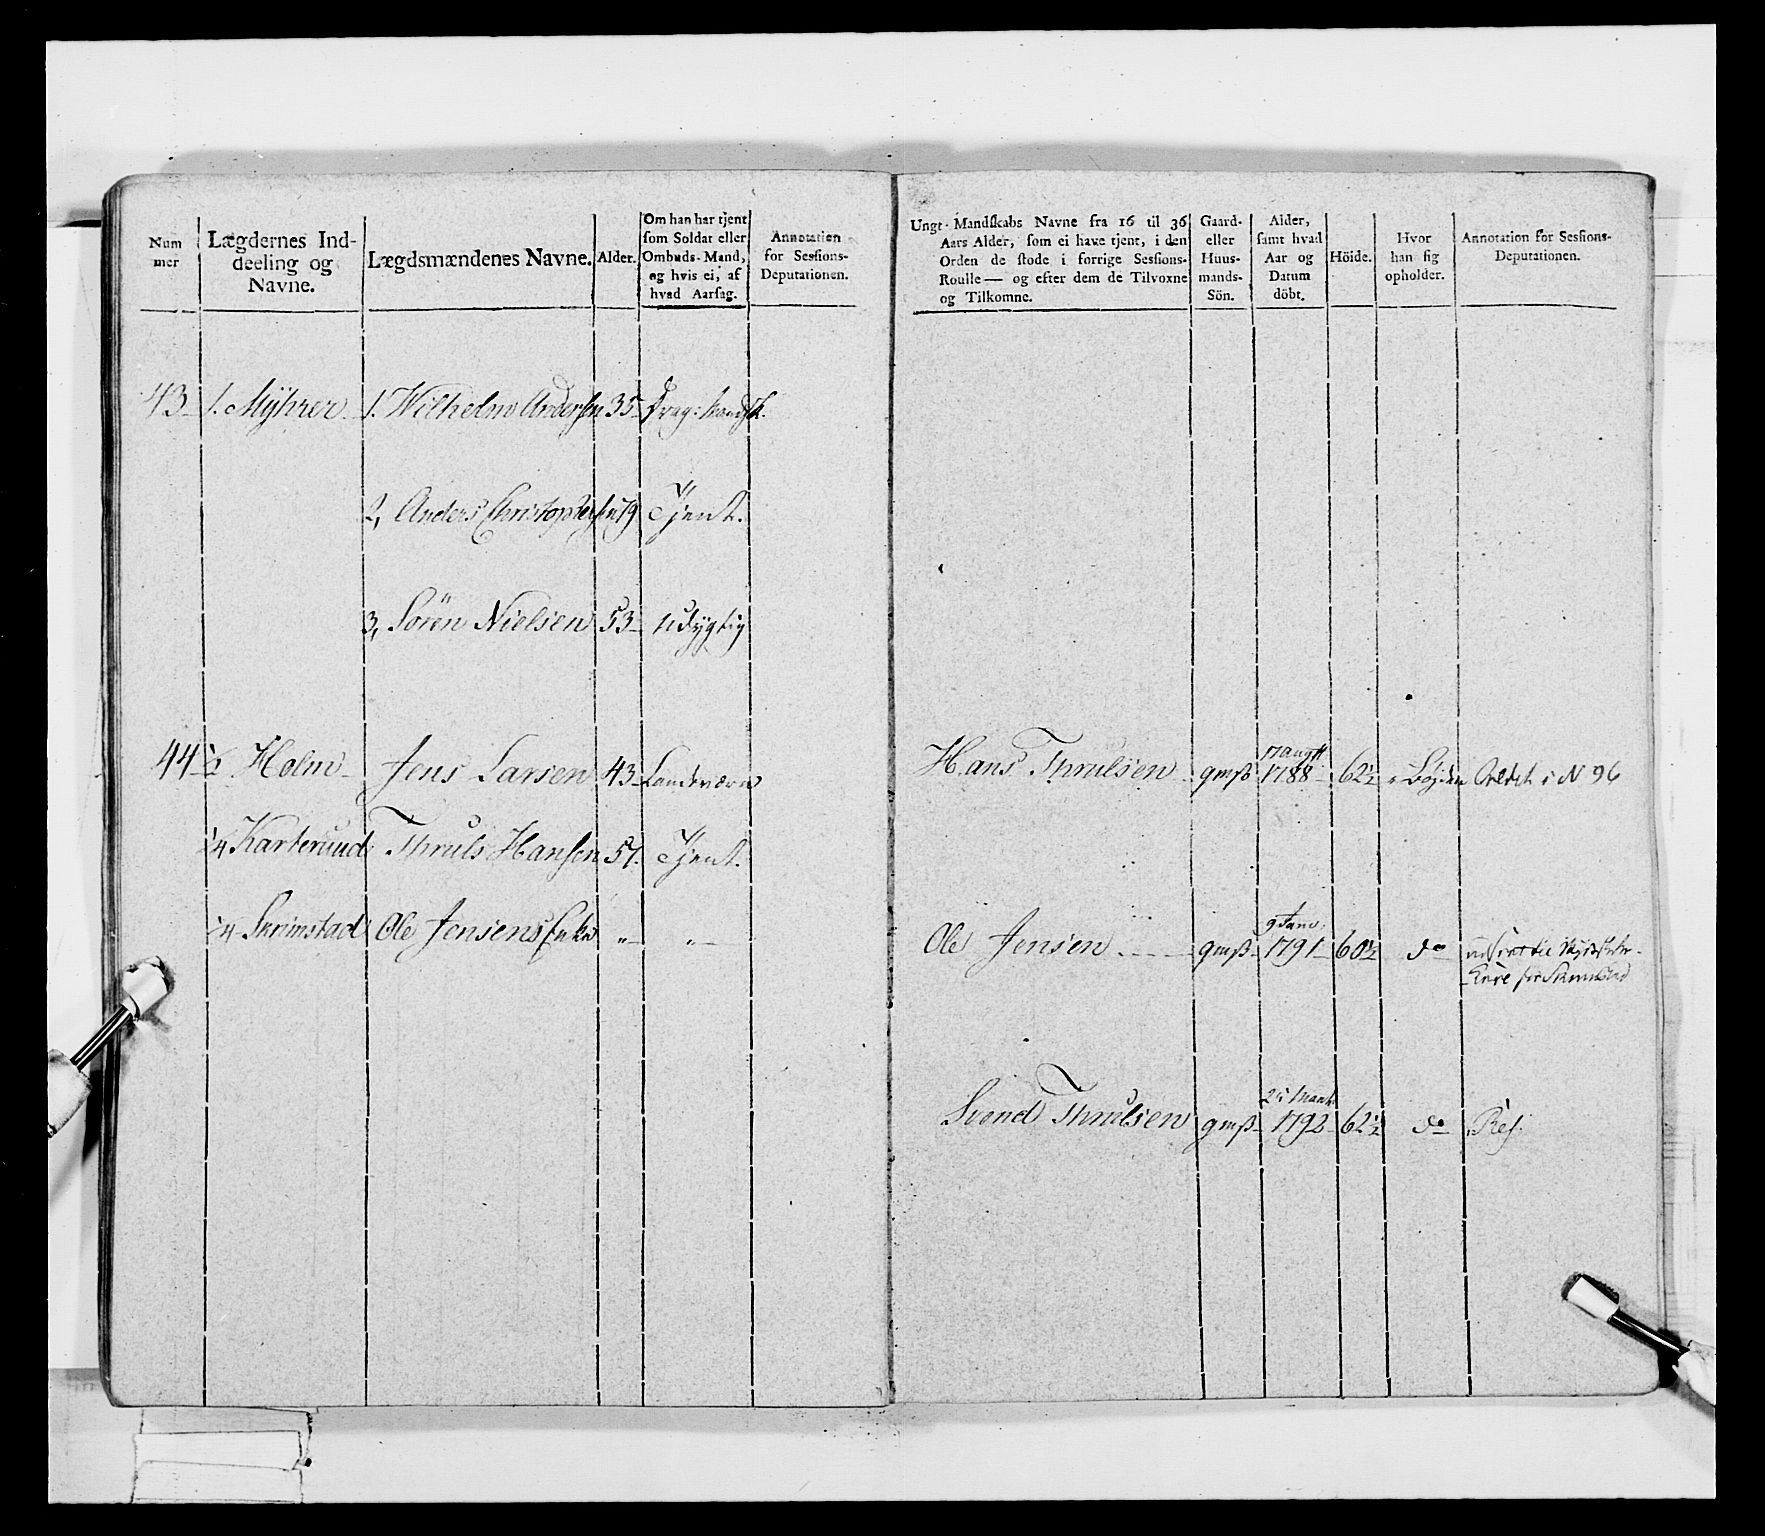 Num
mer
Lægdernes Ind-
deeling og
Navne.
Lægdsmændenes Navne.
Alder.
Om han har tjent
som Soldat eller
Ombuds-Mand,
og hvis ei, af
hvad Aarsag.
Annotation
for Sessions-
Deputationen.
43 1. Mÿhrer 1. Wilhelm Andersen 35 Drag: Mandsk.
2, Anders Christophersen 79 Tjent.
3, Sören Nielsen 53 Udygtig
44 ½ Holm Jens Larsen 43 Landeværn
¼ Karterud Thruls Hansen 57. Tjent.
¼ Skrimstad Ole Jensens Enke „ „
Ungt-Mandskabs Navne fra 16 til 36
Aars Alder, som ei have tjent, i den
Orden de stode i forrige Sessions-
Roulle — og efter dem de Tilvoxne
og Tilkomne.
Gaard-
eller
Huus-
mands-
Sön.
Alder,
samt hvad
Aar og
Datum
döbt.
Höide.
Hvor
han sig
opholder.
Annotation for Sessions-
Deputationen.
17 Augst
Hans Thrulsen gmß 1788 62½ i Bøjden Anført i N 96
9 Janv:
Ole Jensen gmß 1791 60½ do
for Skrimstad
Svend Thrulsen gmß 1792 62½ do Res.